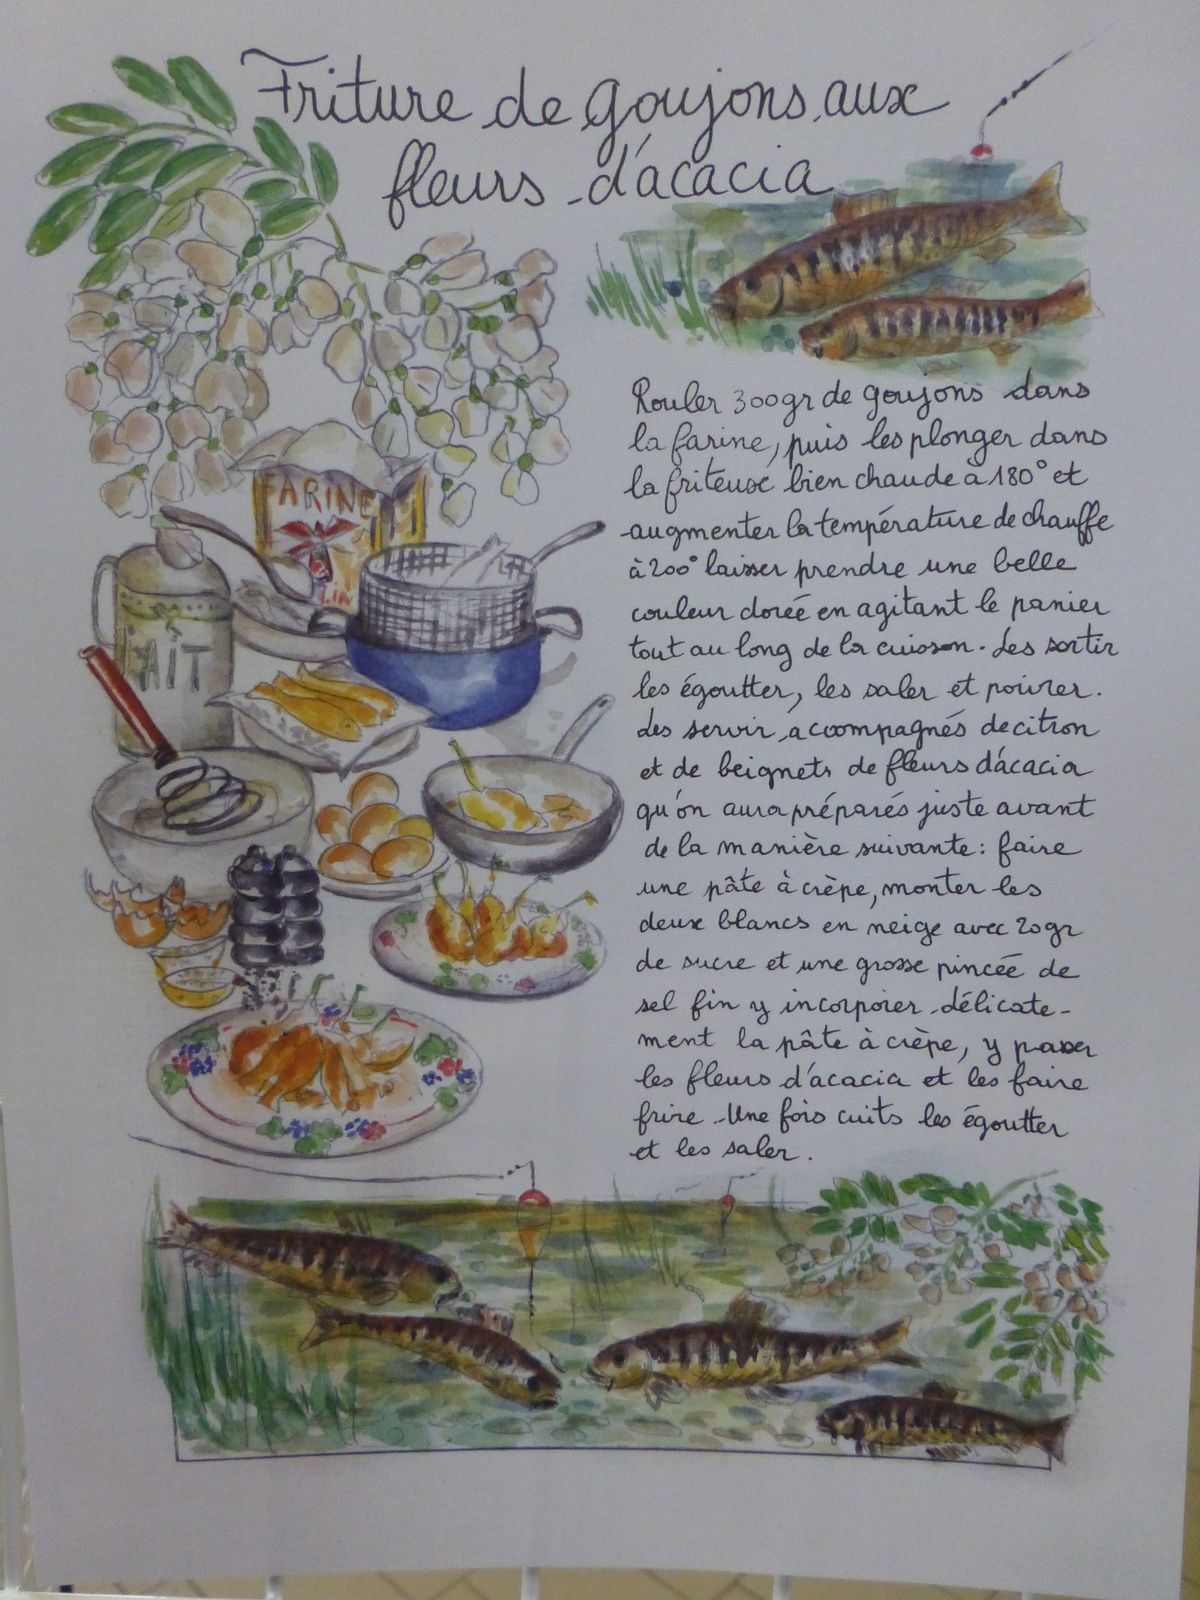 Friture de goujons aux
fleurs d'acacia
Rouler 300gr de goujons dans
la farine, puis les plonger dans
la friteuse bien chaude à 180° et
augmenter la température de chauffe
à 200° laisser prendre une belle
couleur dorée en agitant le panier
tout au long de la cuisson. Les sortir
les égoutter, les saler et poivrer.
Les servir accompagnés de citron
et de beignets de fleurs d'acacia
qu'on aura préparés juste avant
de la manière suivante: faire
une pâte à crèpe, monter les
deux blancs en neige avec 20gr
de sucre et une grosse pincée de
sel fin y incorporer délicate-
ment la pâte à crèpe, y passer
les fleurs d'acacia et les faire
frire. Une fois cuits les égoutter
et les saler.
FARINE
LAIT